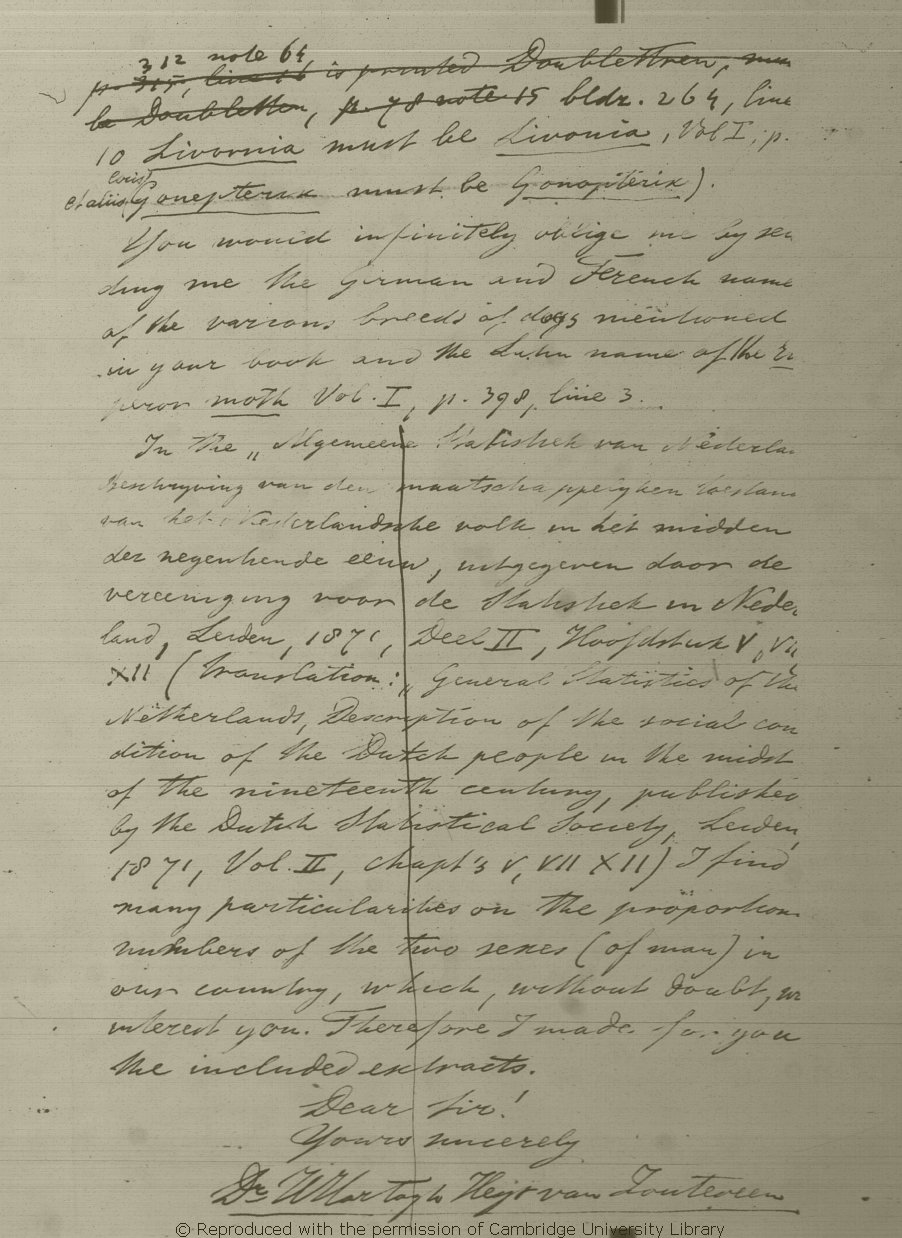 312 note 64,
p. 315, line 16 is printed Doublettren,
be Doubletten, p. 78 note 15 bldz. 264, line
10 Livornia must be Livonia, Vol I, p.
Gonepterix must be Gonopterix).
You would infinitely oblige me by sen
ding me the German and French name
of the various breeds of dogs mentioned
in your book and the Latin name of the Em
peror moth Vol. I, p. 398, line 3.
In the „Algemeene Statistiek van Nederlan
Beschrijving van den maatschappelijken toestand
van het Nederlandsche volk in het midden
der negentiende eeuw, uitgegeven door de
vereeniging voor de Statistiek in Neder
land, Leiden, 1871, Deel II, Hoofdstuk V, VII,
XII (translation: „General Statistics of the
Netherlands, Description of the social con
dition of the Dutch people in the midst
of the nineteenth century, published
by the Dutch Statistical Society, Leiden,
1871, Vol. II, chapt's V, VII XII) I find
many particularities on the proportion
numbers of the two sexes (of man) in
our country, which, without doubt, w
interest you. Therefore I made for you
the included extracts.
Dear Sir!
Yours sincerely
Dr. Hartogh Heijs van Zouteveen
© Reproduced with the permission of Cambridge University Library